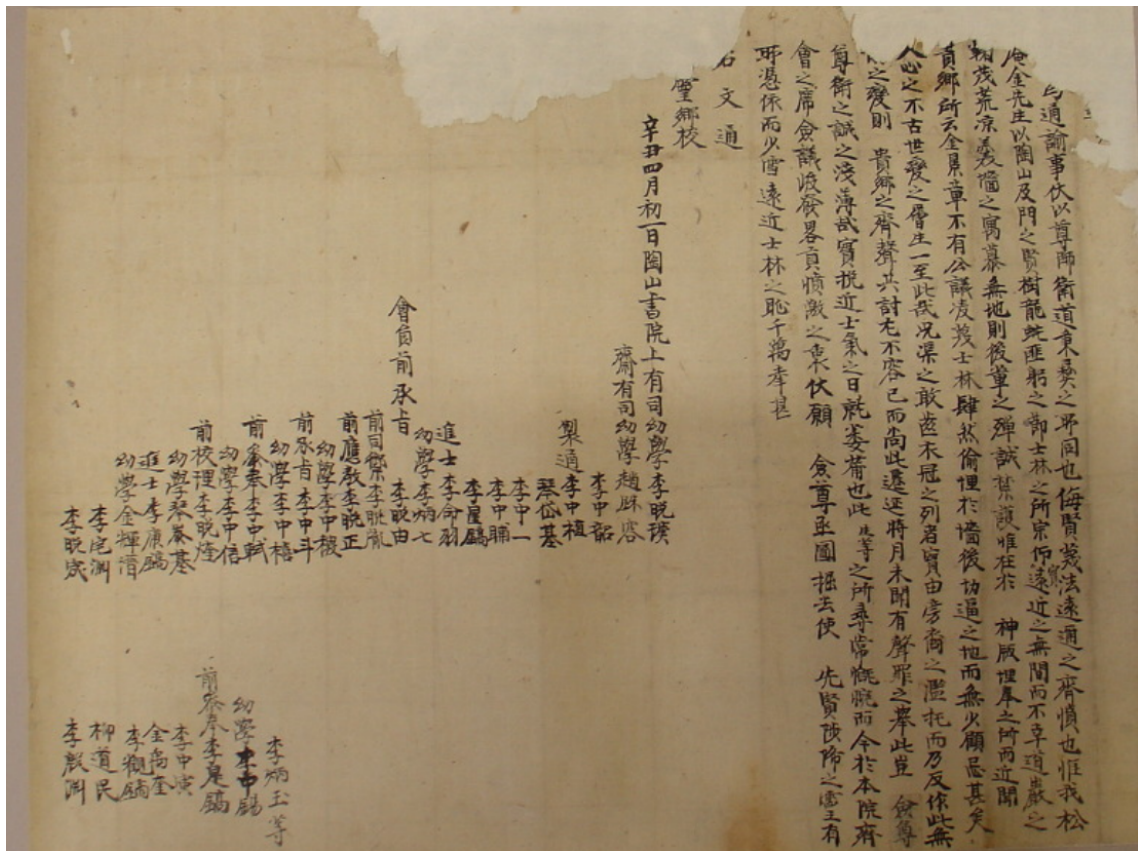 爲通諭事伏以尊師衛道秉彛之所同也侮賢蔑法遠邇之齊憤也惟我松
庵金先生以陶山及門之賢樹龍蛇匪躬之節士林之所宗仰實遠近之無間而不幸道巖之
茂荒凉羹墻之寓慕無地則後輩之殫誠禁護惟在於 神版埋奉之所而近聞
貴鄕所云金景章不有公議凌蔑士林肆然偷埋於墻後切逼之地而無少顧忌甚矣
人心之不古世變之層生一至此哉况渠之敢齒衣冠之列者實由傍裔之濫托而乃反作此無
之變則 貴鄕之齊聲共討尤不容已而尙此遷延將月未聞有聲罪之擧此豈 僉尊
尊衛之誠之淺薄哉實挽近士氣之日就萎薾也此 生等之所尋常慨惋而今於本院齋
會之席僉議峻發畧貢憤激之衷伏願 僉尊亟圖掘去使 先賢陟降之靈有
所憑依而少雪遠近士林之恥千萬幸甚
右文通
鄕校
辛丑四月初一日陶山書院上有司幼學李晚璞
齋有司幼學趙
李中韶
製通李中植
琴岱基
李中一
李中輔
李星鎬
進士李命羽
幼學李炳七
會員前承旨李晚由
前司李晚胤
前應敎李晚正
幼學李中機
前承旨李中斗
幼學李中樯
前參奉李中軾
幼學李中信
前校理李晚煃
幼學琴養基
進士李康鎬
幼學金輝濟
李宅淵
李晚
李炳玉等
幼學李中錫
前參奉李是鎬
李中寅
金禹奎
李觀鎬
柳道民
李殷淵